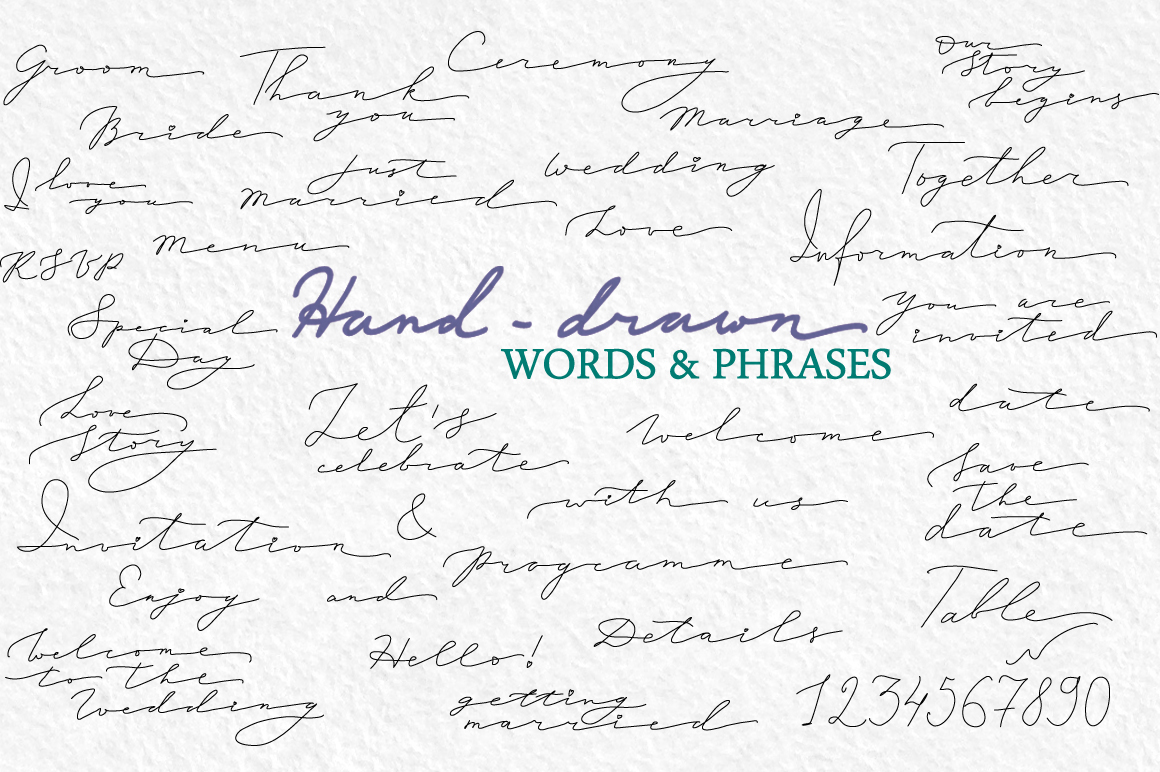 Groom
Thank
you
Ceremony
Our
Story
begins
Bride
Marriage
I love
you
Just
married
wedding
Together
Love
Information
RSVP
menu
Hand-drawn
WORDS & PHRASES
Special
Day
you are
invited
Love
Story
Let's
celebrate
Welcome
date
Save
the
date
Invitation
&
with us
programme
Enjoy
and
Table
N
Details
Welcome
to the
Wedding
Hello!
getting
married
1234567890